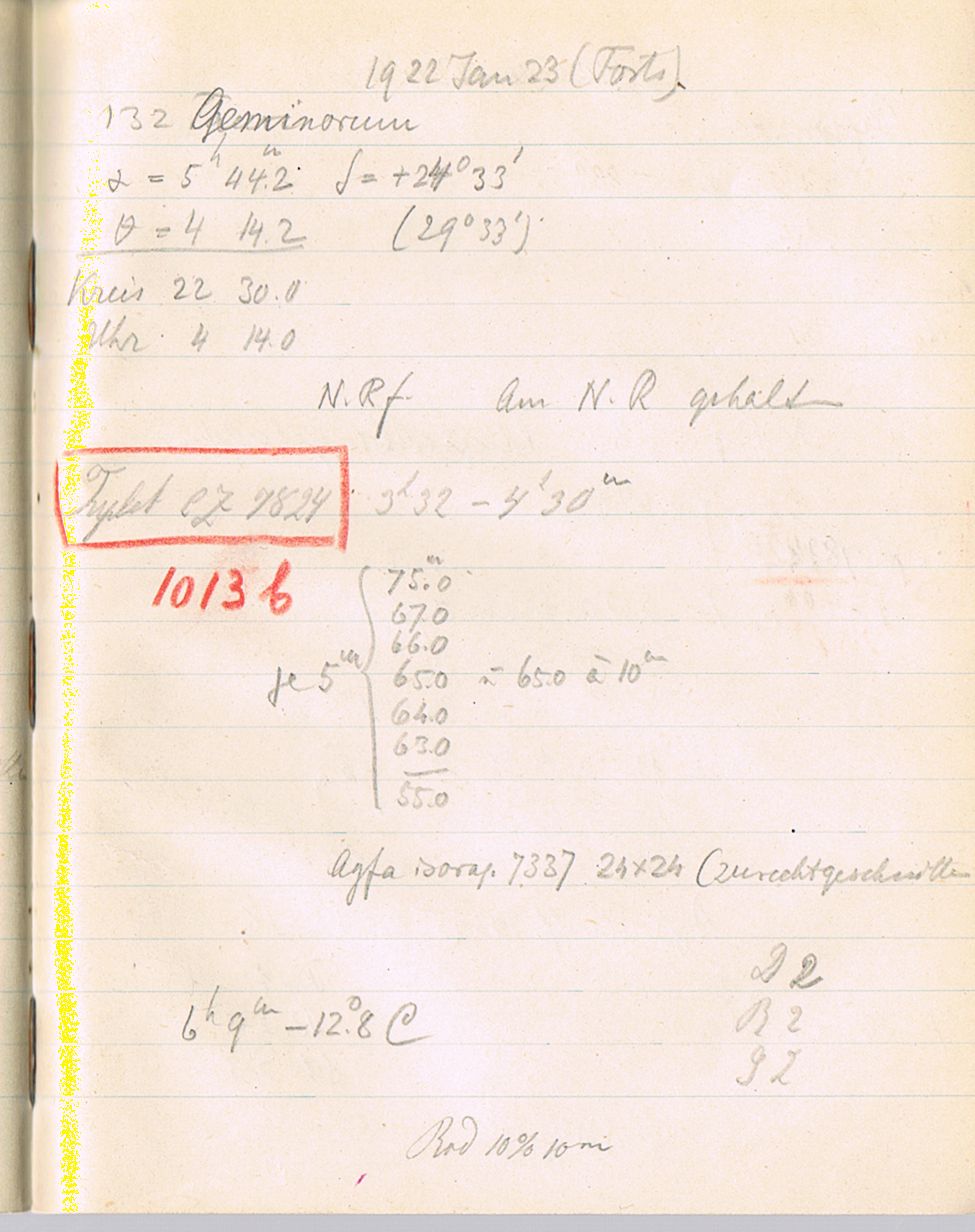 1922 Jan 23 (Forts).
132 Geminorum
α = 5h 44m.2 δ = +24° 33'
θ = 4 14.2 (29° 33')
Kreis 22 30.0
Uhr 4 14.0
N.Rf. Am N.R gehalten
Triplet CZ 7824 3h 32 – 4h 30m
1013 b
75.m0
67.0
66.0
je 5m 65.0 = 65.0 à 10m
64.0
63.0
55.0
Agfa isorap. 7337 24×24 (zurechtgeschnitten
D 2
6h 9m –12°.8 C
R 2
S 2
Rod 10% 10m